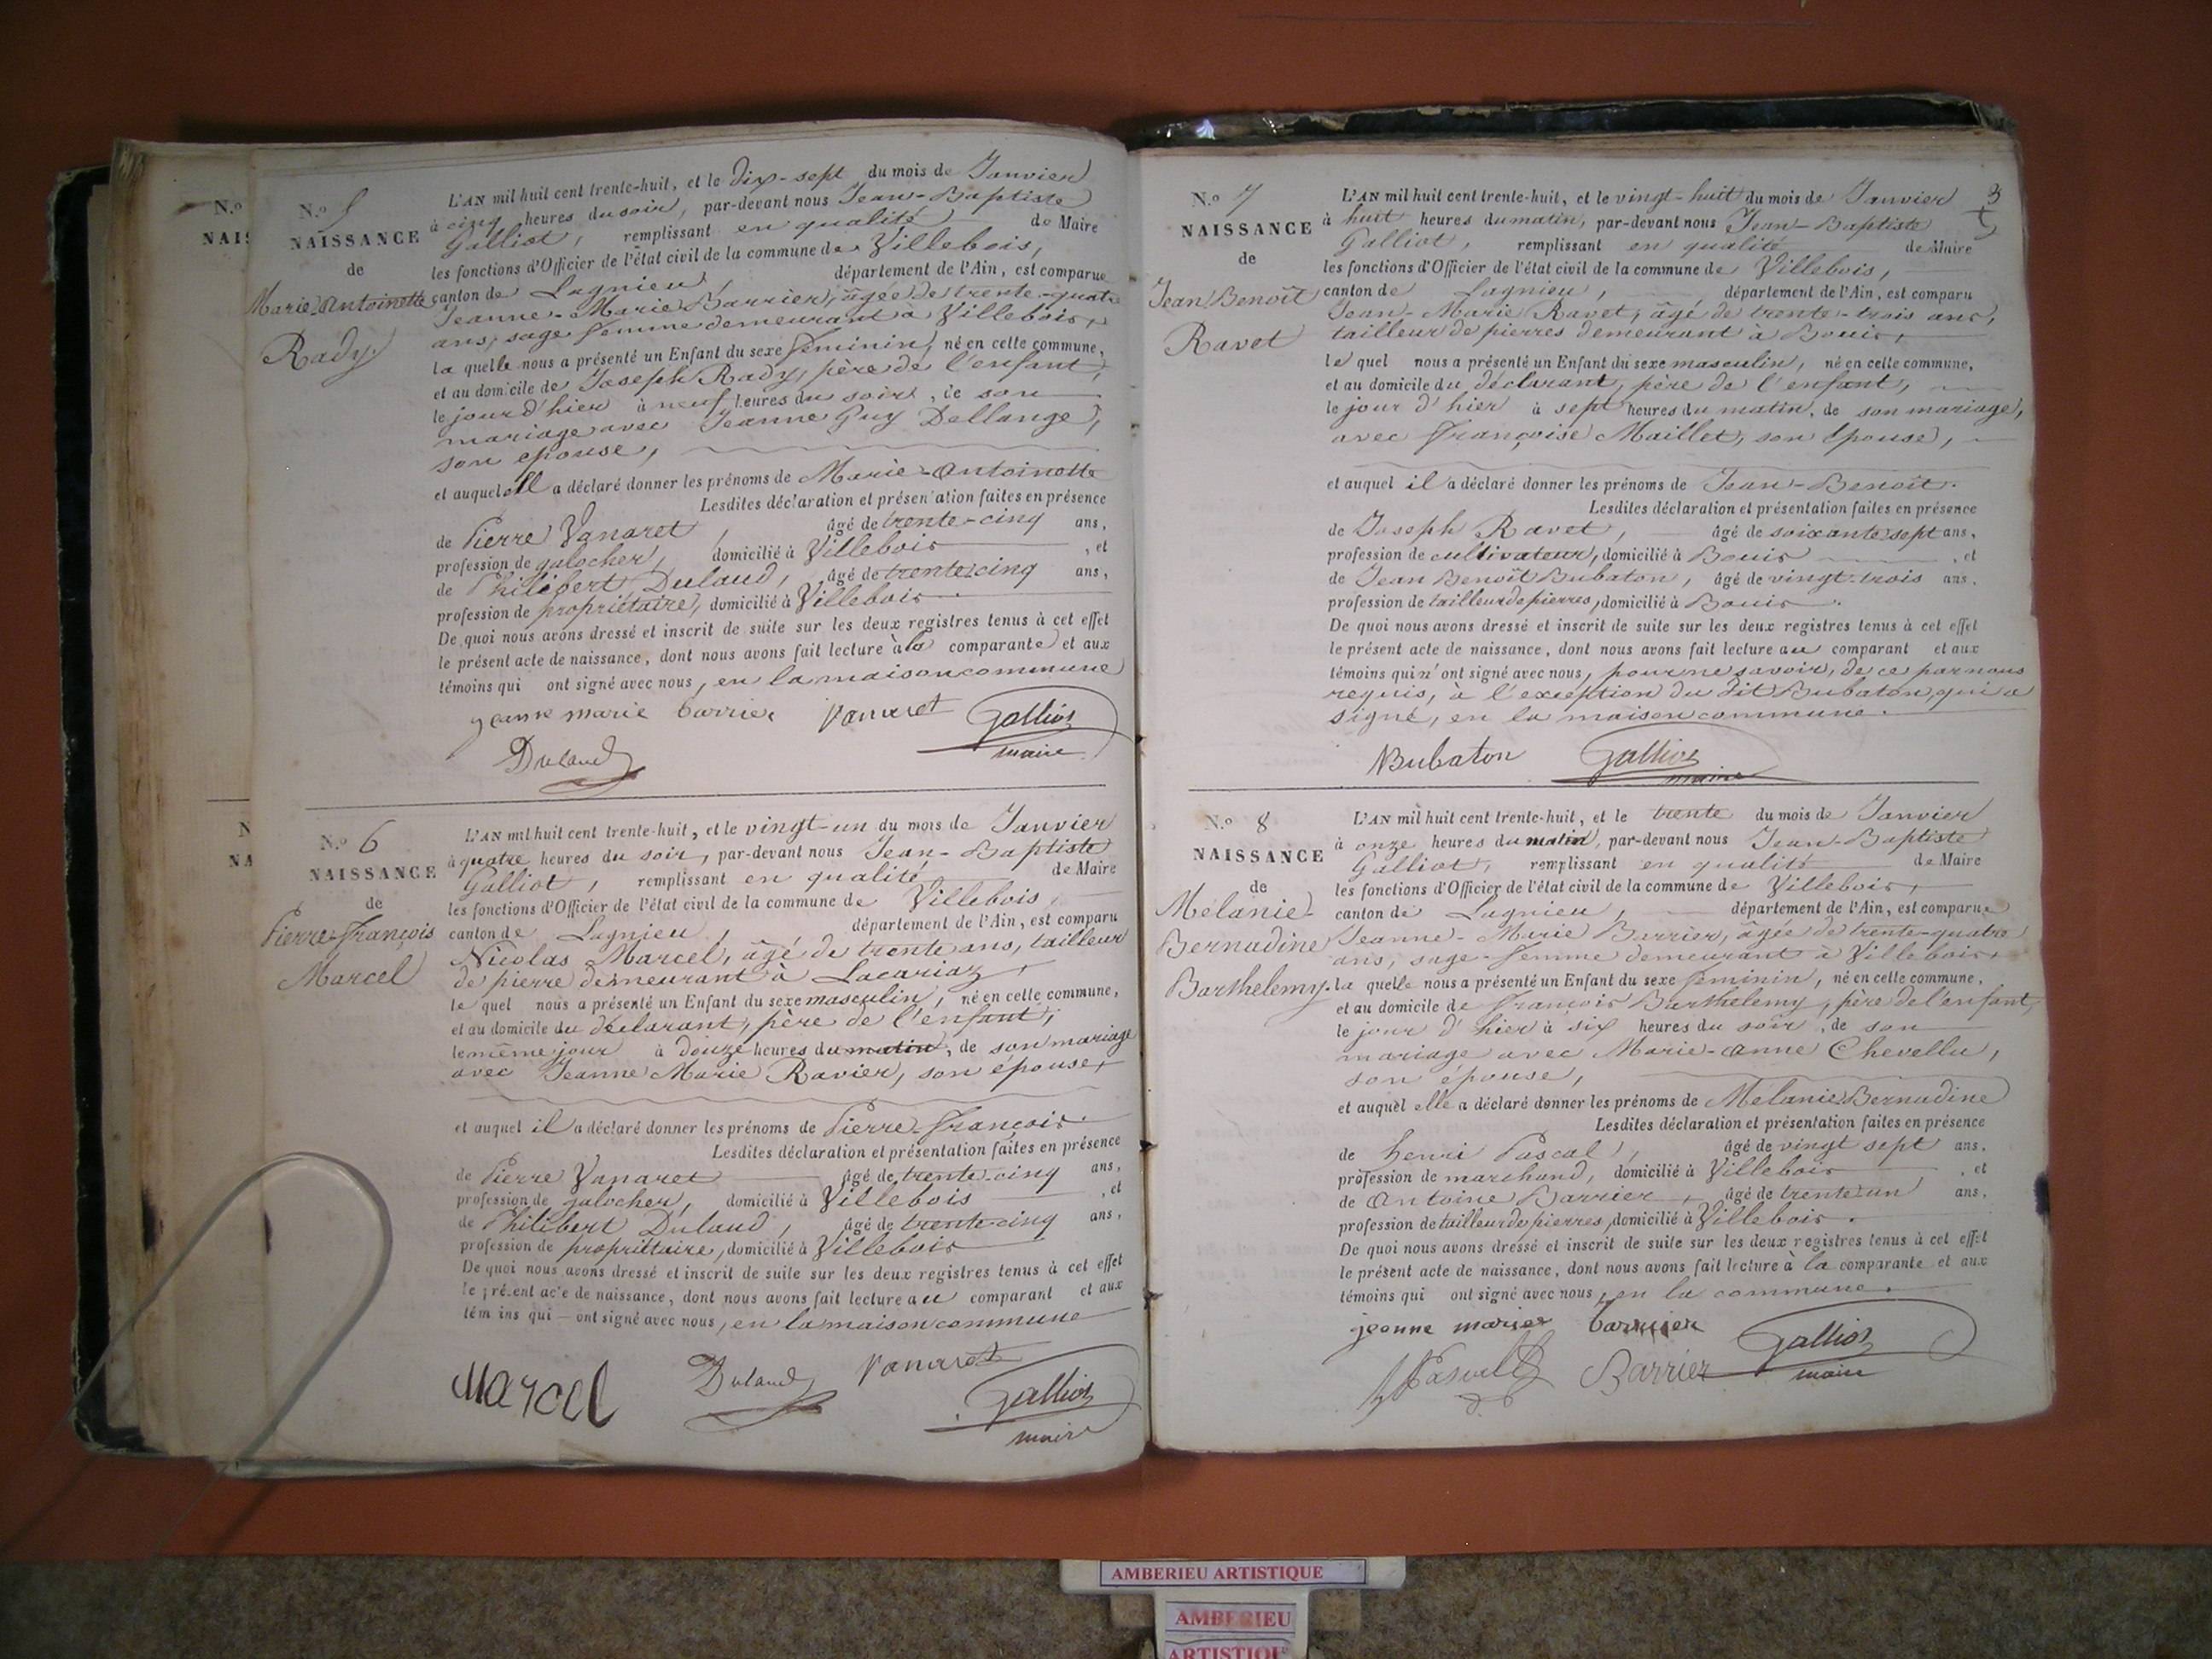 N.o
NAIS
N.o 5
NAISSANCE
de
Marie-Antoinette
Rady
L'AN mil huit cent trente-huit, et le dix-sept du mois de Janvier
à cinq heures du soir, par-devant nous Jean-Baptiste
Galliot, remplissant en qualité de Maire
les fonctions d'Officier de l'état civil de la commune de Villebois,
canton de Lagnieu, département de l'Ain, est comparue
Jeanne-Marie Barrier, âgée de trente-quatre
ans, sage femme demeurant à Villebois,
la quelle nous a présenté un Enfant du sexe féminin, né en cette commune,
et au domicile de Joseph Rady, père de l'enfant,
le jour d'hier à neuf heures du soir, de son
mariage avec Jeanne Guy Dellange,
son épouse,
et auquel elle a déclaré donner les prénoms de Marie-Antoinette
Lesdites déclaration et présentation faites en présence
de Pierre Vanaret, âgé de trente-cinq ans,
profession de galocher, domicilié à Villebois, et
de Philibert Dulaud, âgé de trente-cinq ans,
profession de propriétaire, domicilié à Villebois.
De quoi nous avons dressé et inscrit de suite sur les deux registres tenus à cet effet
le présent acte de naissance, dont nous avons fait lecture à la comparante et aux
témoins qui ont signé avec nous, en la maison commune
jeanne marie barrier Vanaret Galliot
Dulaud maire
N
NA
N.o 6
NAISSANCE
de
Pierre-François
Marcel
L'AN mil huit cent trente-huit, et le vingt-un du mois de Janvier
à quatre heures du soir, par-devant nous Jean-Baptiste
Galliot, remplissant en qualité de Maire
les fonctions d'Officier de l'état civil de la commune de Villebois,
canton de Lagnieu, département de l'Ain, est comparu
Nicolas Marcel, âgé de trente ans, tailleur
de pierre demeurant à Lacariaz,
le quel nous a présenté un Enfant du sexe masculin, né en cette commune,
et au domicile du déclarant, père de l'enfant,
le même jour à douze heures du matin, de son mariage
avec Jeanne Marie Ravier, son épouse,
et auquel il a déclaré donner les prénoms de Pierre-François.
Lesdites déclaration et présentation faites en présence
de Pierre Vanaret âgé de trente-cinq ans,
profession de galocher, domicilié à Villebois, et
de Philibert Dulaud, âgé de trente-cinq ans,
profession de propriétaire, domicilié à Villebois
De quoi nous avons dressé et inscrit de suite sur les deux registres tenus à cet effet
le présent acte de naissance, dont nous avons fait lecture au comparant et aux
témoins qui ont signé avec nous, en la maison commune
Marcel Dulaud Vanaret Galliot
maire
3
N.o 7
NAISSANCE
de
Jean Benoît
Ravet
L'AN mil huit cent trente-huit, et le vingt-huit du mois de Janvier
à huit heures du matin, par-devant nous Jean-Baptiste
Galliot, remplissant en qualité de Maire
les fonctions d'Officier de l'état civil de la commune de Villebois,
canton de Lagnieu, département de l'Ain, est comparu
Jean-Marie Ravet, âgé de trente-trois ans,
tailleur de pierres demeurant à Bouis,
le quel nous a présenté un Enfant du sexe masculin, né en cette commune,
et au domicile du déclarant, père de l'enfant,
le jour d'hier à sept heures du matin, de son mariage,
avec Françoise Maillet, son épouse,
et auquel il a déclaré donner les prénoms de Jean-Benoît.
Lesdites déclaration et présentation faites en présence
de Joseph Ravet, âgé de soixante sept ans,
profession de cultivateur, domicilié à Bouis, et
de Jean Benoît Bubaton, âgé de vingt-trois ans,
profession de tailleur de pierres, domicilié à Bouis.
De quoi nous avons dressé et inscrit de suite sur les deux registres tenus à cet effet
le présent acte de naissance, dont nous avons fait lecture au comparant et aux
témoins qui n'ont signé avec nous, pour ne savoir, de ce par nous
requis, à l'exception du dit Bubaton, qui a
signé, en la maison commune.
Bubaton Galliot
maire
N.o 8
NAISSANCE
de
Mélanie-
Bernadine
Barthelemy.
L'AN mil huit cent trente-huit, et le trente du mois de Janvier
à onze heures du matin, par-devant nous Jean-Baptiste
Galliot, remplissant en qualité de Maire
les fonctions d'Officier de l'état civil de la commune de Villebois,
canton de Lagnieu, département de l'Ain, est comparue
Jeanne-Marie Barrier, âgée de trente-quatre
ans, sage-femme demeurant à Villebois,
la quelle nous a présenté un Enfant du sexe féminin, né en cette commune,
et au domicile de François Barthelemy, père de l'enfant,
le jour d'hier à six heures du soir, de son
mariage avec Marie-Anne Chevellu,
son épouse,
et auquel elle a déclaré donner les prénoms de Mélanie Bernadine
Lesdites déclaration et présentation faites en présence
de henri Pascal, âgé de vingt sept ans,
profession de marchand, domicilié à Villebois, et
de Antoine Barrier, âgé de trente-un ans,
profession de tailleur de pierres, domicilié à Villebois.
De quoi nous avons dressé et inscrit de suite sur les deux registres tenus à cet effet
le présent acte de naissance, dont nous avons fait lecture à la comparante et aux
témoins qui ont signé avec nous, en la commune.
jeanne marie barrier Galliot
hPascal Barrier maire
AMBERIEU ARTISTIQUE
AMBERIEU
ARTISTIQUE